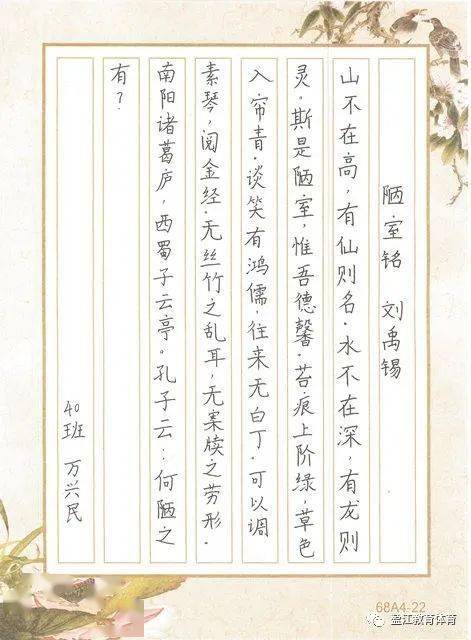 陋室铭 刘禹锡
山不在高，有仙则名.水不在深，有龙则
灵.斯是陋室，惟吾德馨.苔痕上阶绿，草色
入帘青.谈笑有鸿儒，往来无白丁.可以调
素琴，阅金经.无丝竹之乱耳，无案牍之劳形.
南阳诸葛庐，西蜀子云亭。孔子云：何陋之
有？
40班 万兴民
68A4-22
盈江教育体育